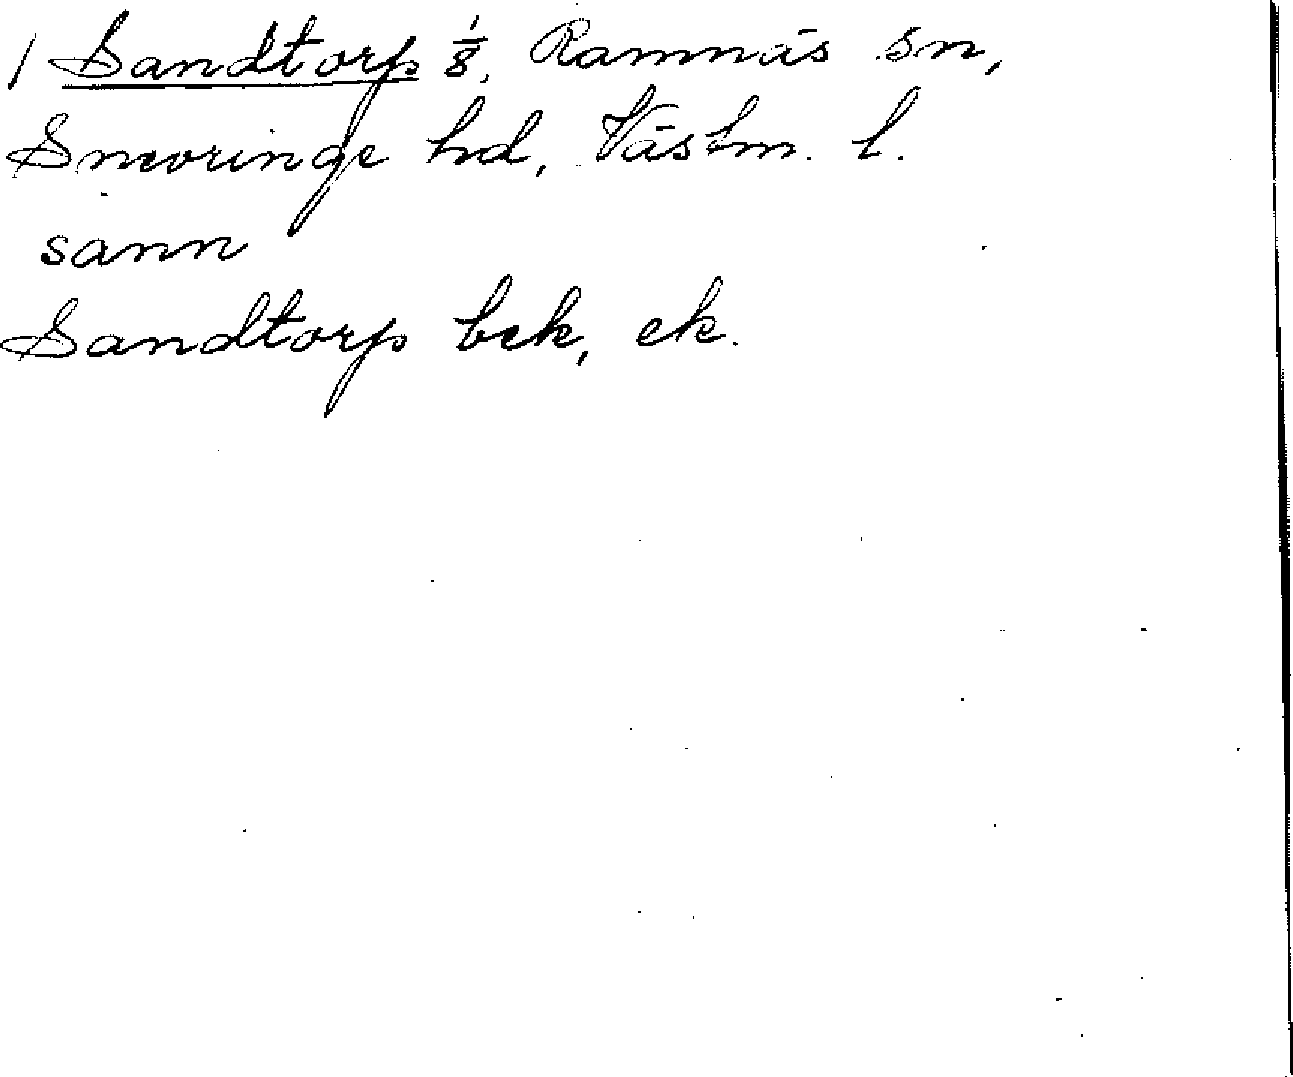 / Sandtorp 1/8, Ramnäs sn,
Snevringe hd, Västm. l.
sann
Sandtorp bek, ek.